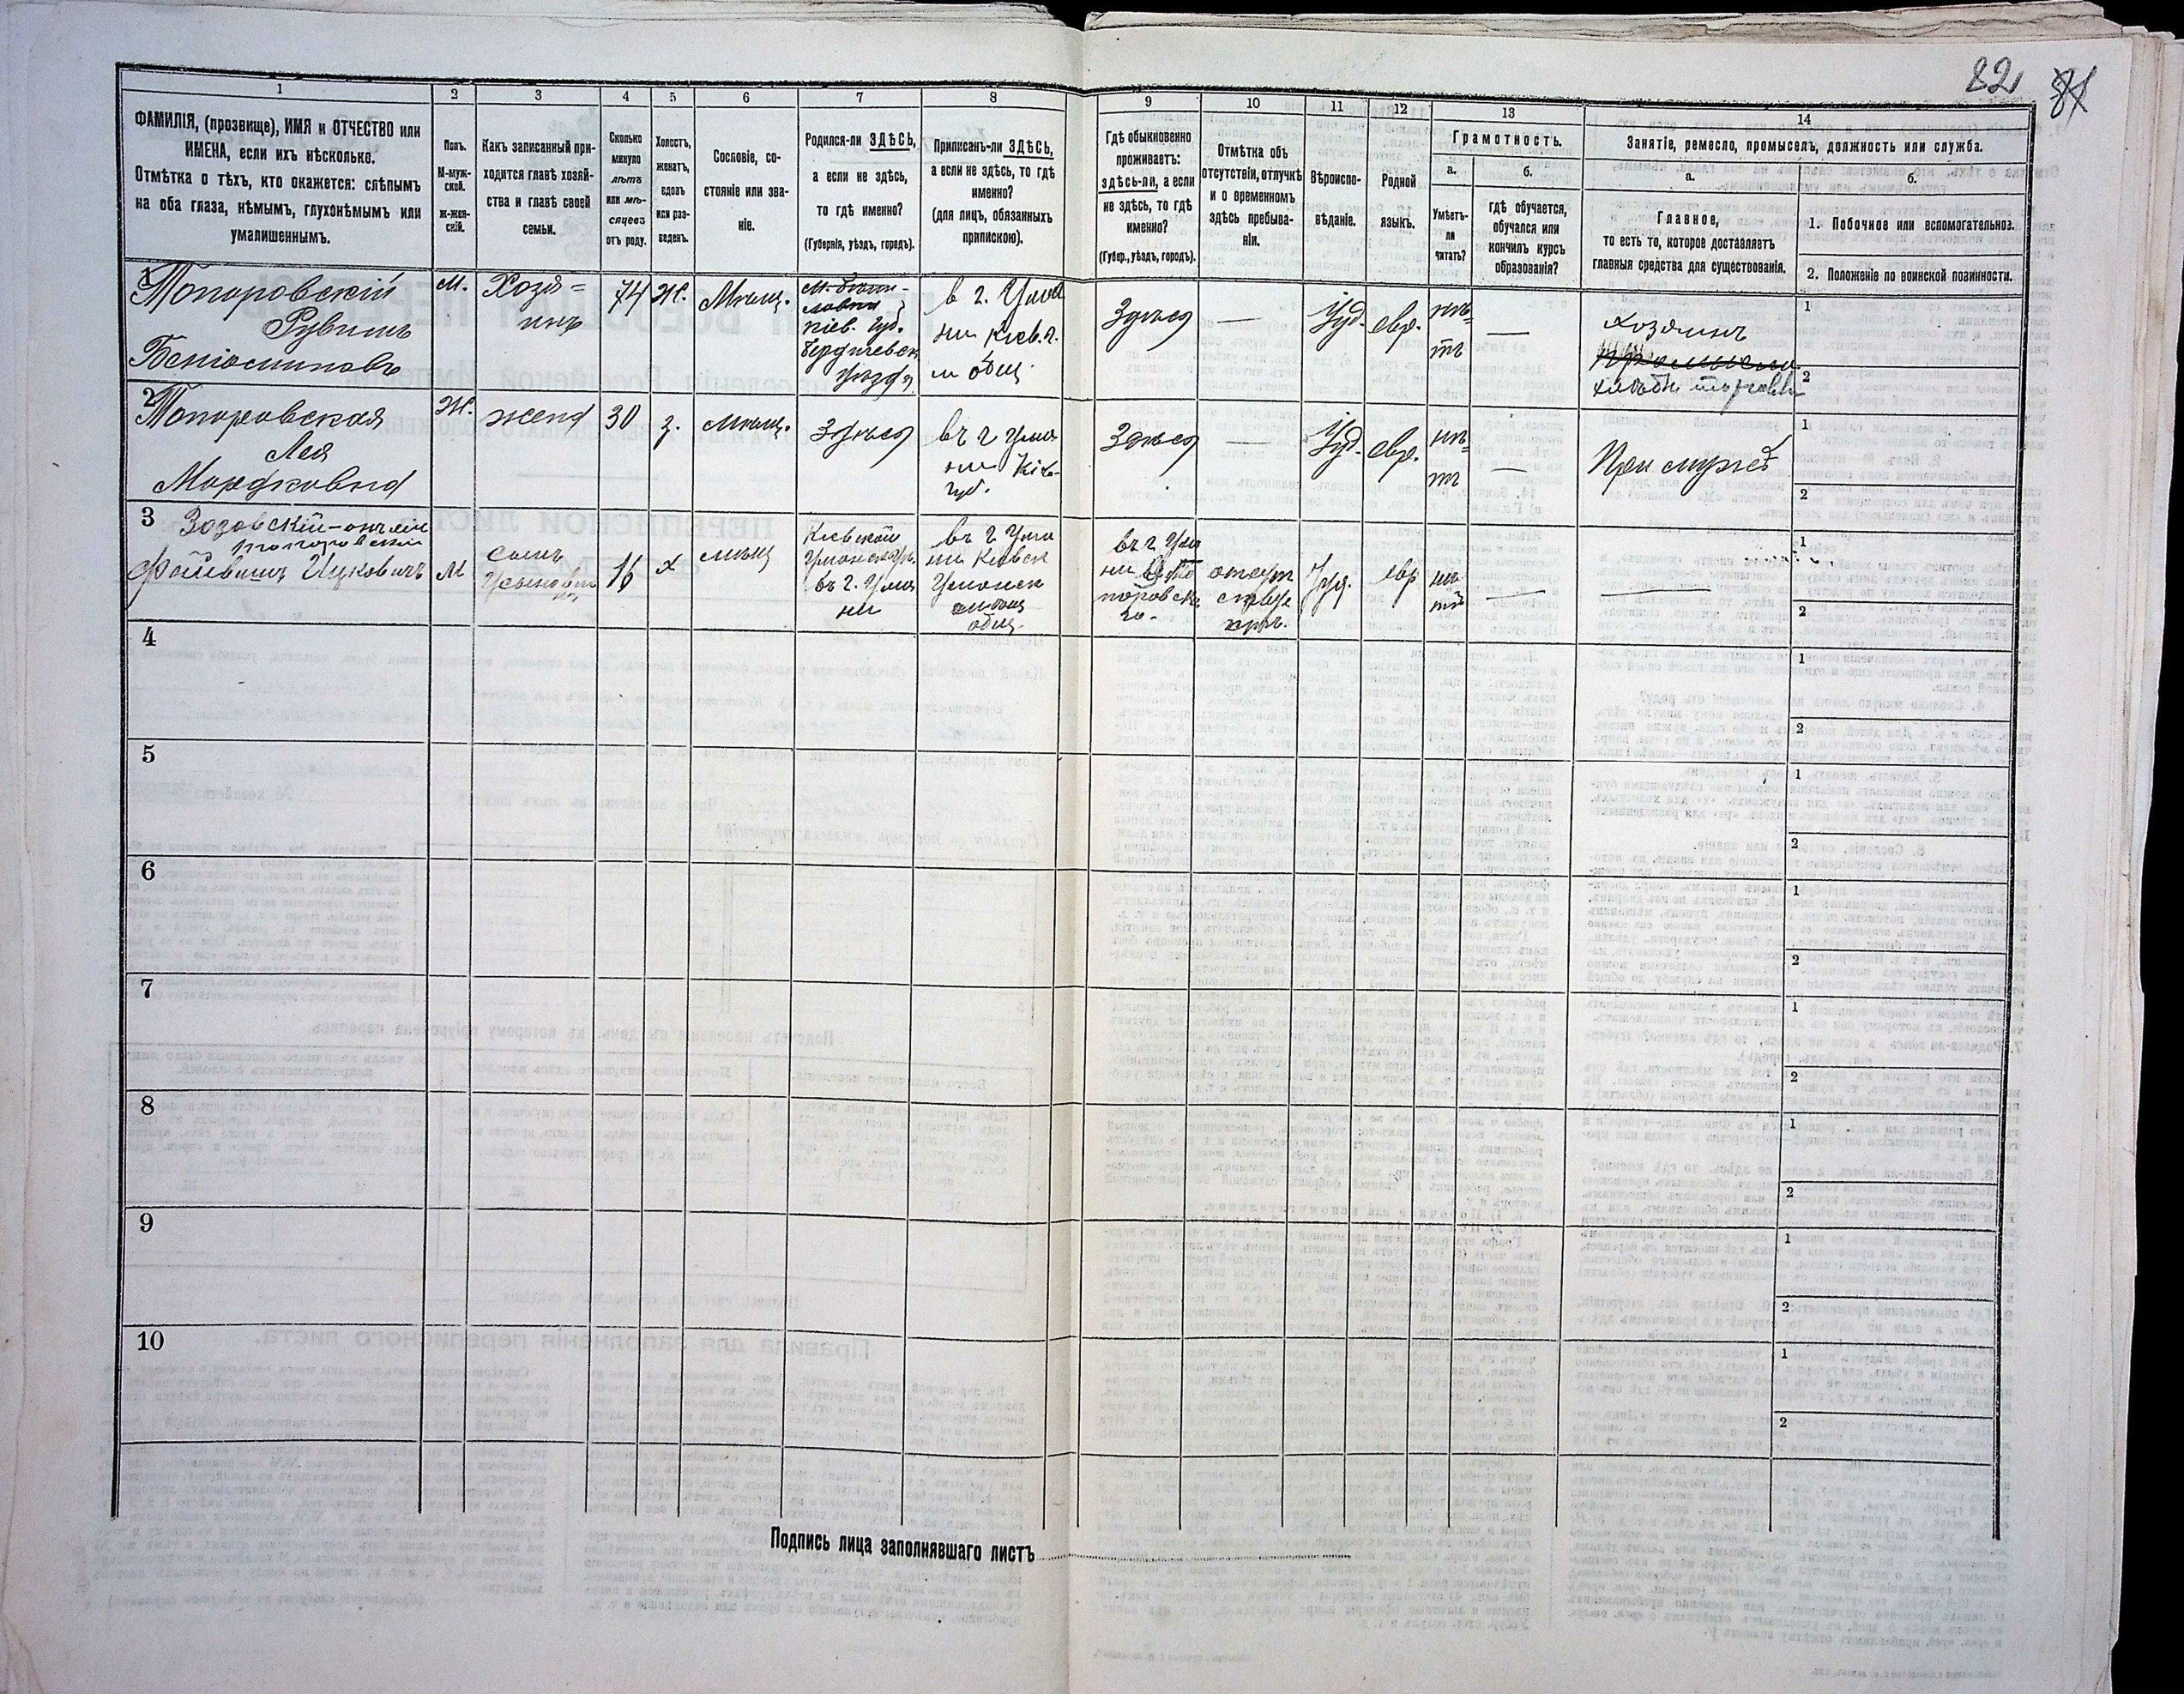 82 81
1
2
3
4
5
6
7
8
9
10
11
12
13
14
ФАМИЛІЯ, (прозвище), ИМЯ и ОТЧЕСТВО или
ИМЕНА, если ихъ нѣсколько.
Отмѣтка о тѣхъ, кто окажется: слѣпымъ
на оба глаза, нѣмымъ, глухонѣмымъ или
умалишеннымъ.
Полъ.
М-муж-
ской.
ж-жен-
скій.
Какъ записанный при-
ходится главѣ хозяй-
ства и главѣ своей
семьи.
Сколько
минуло
лѣтъ
или мѣ-
сяцевъ
отъ роду.
Холостъ,
женатъ,
вдовъ
или раз-
веденъ.
Сословіе, со-
стояніе или зва-
ніе.
Родился-ли ЗДѢСЬ,
а если не здѣсь,
то гдѣ именно?
(Губернія, уѣздъ, городъ).
Приписанъ-ли ЗДѢСЬ,
а если не здѣсь, то гдѣ
именно?
(для лицъ, обязанныхъ
припискою).
Гдѣ обыкновенно
проживаетъ:
здѣсь-ли, а если
не здѣсь, то гдѣ
именно?
(Губер., уѣздъ, городъ).
Отмѣтка объ
отсутствіи, отлучкѣ
и о временномъ
здѣсь пребыва-
ніи.
Вѣроиспо-
вѣданіе.
Родной
языкъ.
Грамотность.
а.
Умѣетъ-
ли
читать?
б.
гдѣ обучается,
обучался или
кончилъ курсъ
образованія?
Занятіе, ремесло, промыселъ, должность или служба.
а.
Главное,
то есть то, которое доставляетъ
главныя средства для существованія.
б.
1. Побочное или вспомогательное.
2. Положеніе по воинской повинности.
1
Топоровскій
Рувинъ
Беніоминовъ
М.
Хозя=
инъ
74
Ж.
Мѣщ.
Кіев. губ.
Бердичевск
уѣзда
в г. Ума
ни Кіев. г.
м общ.
Здѣсь
—
Іуд.
евр.
нѣ=
тъ
—
Хозяинъ
хлѣбн торговли
1
2
2
Топоровская
Лея
Мордковна
Ж.
жена
30
з.
мѣщ.
Здѣсь
въ г Ума
ни Кіев
губ.
Здѣсь
—
Іуд.
евр.
нѣ=
тъ
—
При мужѣ
1
2
3
Зозовскій-онъ же
топоровскій
Файвишъ Ицковичъ
М
сынъ
Усыновл
16
х
мѣщ
Кіевской
Уманск. у.
въ г. Ума
ни
въ г Ума
ни Кіевск
Уманск
общ.
въ г Ума
ни
поровска
го.
отсут
ству
Іуд.
евр
нѣ
тъ
—
—
1
2
4
1
2
5
1
2
6
1
2
7
1
2
8
1
2
9
1
2
10
1
2
Подпись лица заполнявшаго листъ